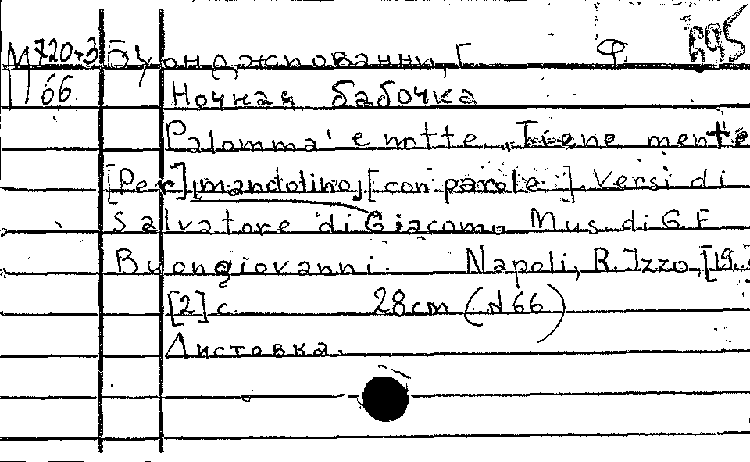 М 720-3 Буонджованни, Г. Ф. 695
П 66 Ночная бабочка
Palomma 'e notte. „Tiene mente
[Per] mandolino [con parole]. Versi di
Salvatore di Giacomo Mus. di G. F.
Buongiovanni. Napoli, R. Izzo, [19
[2] с. 28 cm (N 66)
Листовка.